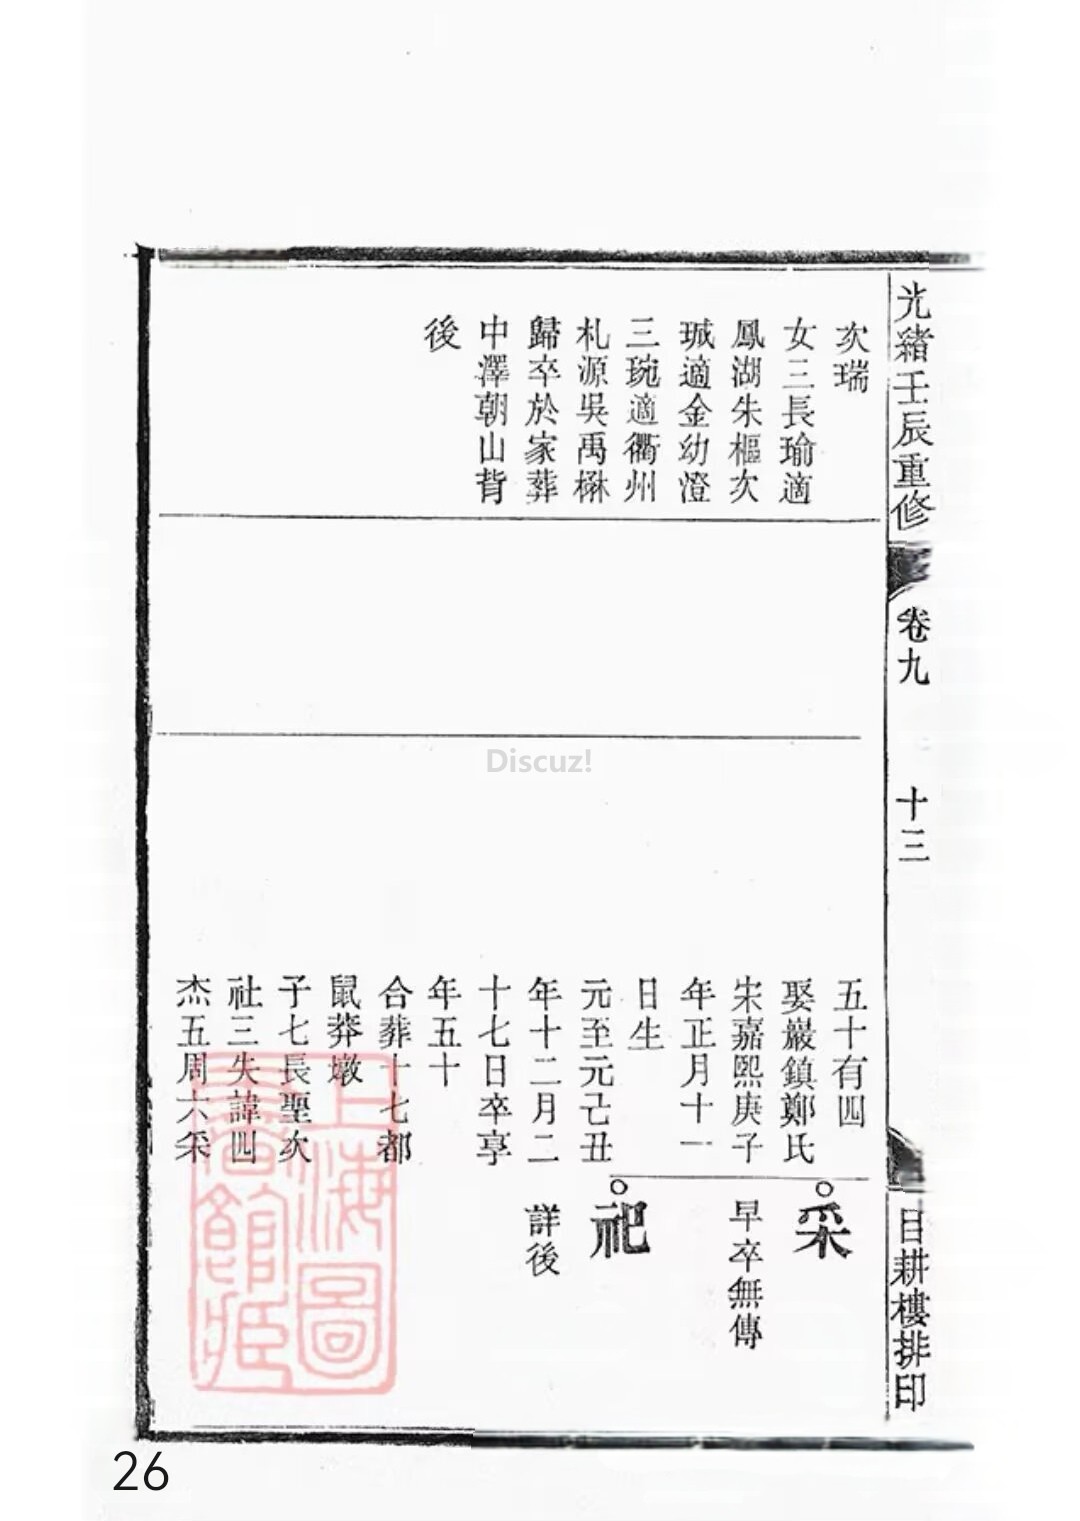 光緒壬辰重修
卷九
十三
目耕樓排印
次瑞
女三長瑜適
鳳湖朱樞次
珹適金幼澄
三琬適衢州
札源吳禹楙
歸卒於家葬
中澤朝山背
後
五十有四
娶巖鎮鄭氏
宋嘉熙庚子
年正月十一
日生
元至元己丑
年十二月二
十七日卒享
年五十
合葬十七都
鼠莽墩
子七長聖次
社三失諱四
杰五周六采
采
早卒無傳
祀
詳後
上海圖
書館藏
Discuz!
26